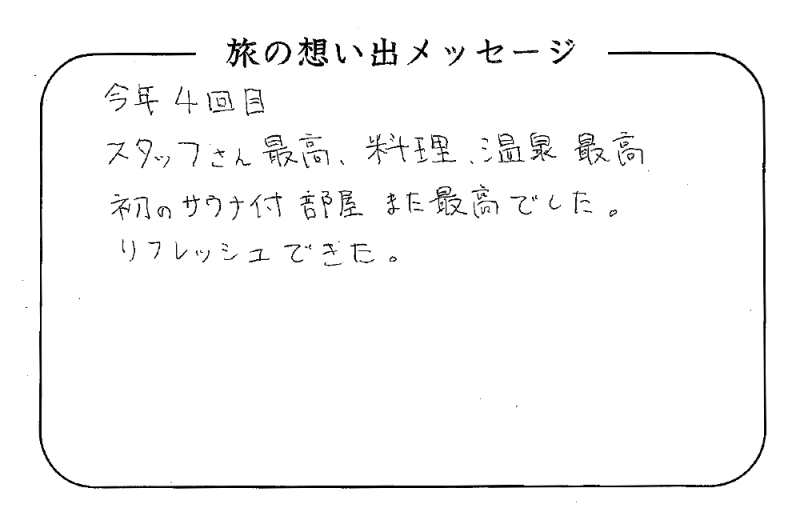 旅の想い出メッセージ
今年4回目
スタッフさん最高、料理、温泉 最高
初のサウナ付部屋 また最高でした。
リフレッシュできた。